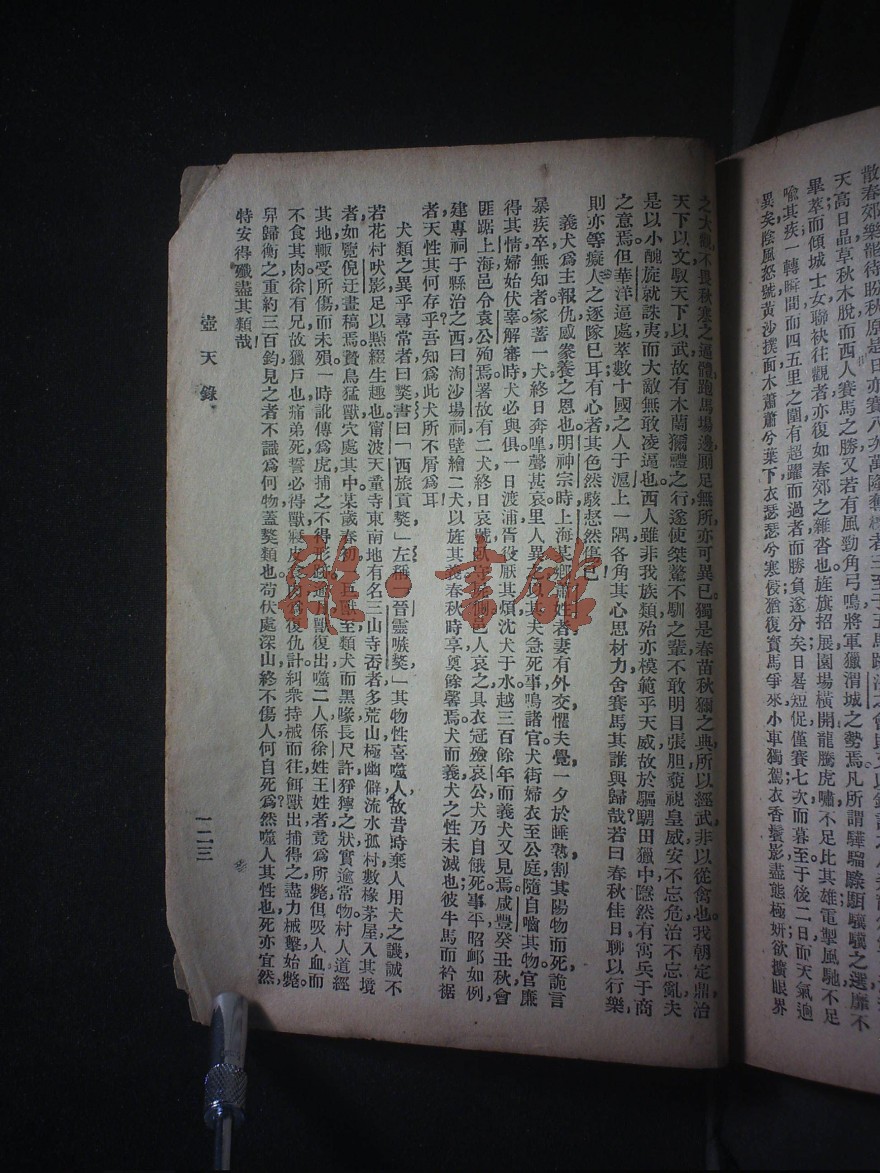 散春郊樂能待盼秋原是日亦賽八次萬隆奪標者三至于五馬跑
天高日晶草秋木脫而西人賽馬之勝又若有風勁角弓鳴將軍獵渭城之勢焉凡所謂驊騮騄駬驥驥之選靡不
畢萃而傾城士女聯袂往觀者亦復如春郊之雜沓也旌旗招展園場橫開龍騰虎嘯不足比其雄電掣風馳不足
喻其疾一轉瞬間而四五里之圍有超躍而過者而勝負遂分矣日晷短促僅賽七次而暮至于後二日而天氣迥
異矣陰風怒號黃沙撲面木蕭蕭兮葉下衣瑟瑟兮寒侵猶復寶馬爭來小車獨駕衣香鬢影盡態極妍欲擴眼界
之大觀不畏秋寒之逼體跑馬場邊廁足無所亦可異已獨是春苗秋獮之典所以經武非以從禽也我朝定鼎治
天下以文馭天下以武故有木蘭獮禮之行遂使桀驁不馴之輩不敢明目張胆藐視皇威安不忘危治不忘亂夫
是以小醜旋就誅夷而大敵無敢凌逼也西人雖非我族類殆亦模範乎天威故於驅騶田獵中隱然有寓兵于商
之意焉但華洋逼處萃數十國之人于滬上一隅各角其心思材力舍賽馬其誰與歸哉若曰春秋佳日聊以行樂，
則亦等癡人之逐隊已耳有心者其色然駭惄然傷已！
義犬爲主報仇感豢養之恩也明神宗時上海某鄉姓者妻有外交懼夫覺，一夕於睡熟割其陽物而死詭言
暴疾卒無知者家蓄一犬終日奔嘷聲甚哀里人異之其夫急死事鳴諸官犬銜婦衣至公庭隨自嚙其物官廉
得其情婦始伏辜解審時犬必與俱一日渡浦胥役厭其煩沈犬于水越三百餘年而義犬又見焉咸豐癸丑秋會
匪踞上海邑令袁公殉焉署故有二犬終日哀號臥守死側邑人哀之具衣冠殮袁公犬乃自餓死事平昭卹如例，
建專祠于縣治之西曰淘沙場祠壁繪二犬以旌其義春秋時享奠餘馨焉犬而義犬之性未滅也彼牛馬而衿裾
者天性其何存乎吾知爲此犬所不屑爲耳！
犬類之異乎尋常者曰獒書曰「西旅貢獒」左稱「晉靈嗾獒」其物性喜噬人故昔時棄人用犬之譏誠不
若花村吠影足以點綴生趣也甯波天童寺東南地有名三山寺岙者多荒山極幽僻流水孤村數椽茅屋入其境
者如覽倪迂畫稿焉鷙鳥猛獸穴處其中某歲春初巨獸至類犬而黑喙長尺許猙獰之狀實逾常物村人道經
其地輒受所傷而未殞一時訛傳爲虎捕之不得形跡逾月獸復出噬二人係徐姓王姓者竟爲所斃但吸人血而
不食其肉徐有兄故獵戶也痛弟死誓必得獸寢皮食肉爲復仇計糾衆持械而往餌獸出捕得之盡力械擊始斃。
舁歸衡之重約三百鈞見之者不識爲何物蓋獒類也苟伏處深山終不傷人何自死爲然噬人其性也死亦宜然，
特安得殲盡其類哉！
壺天錄
一二三
雅·書館